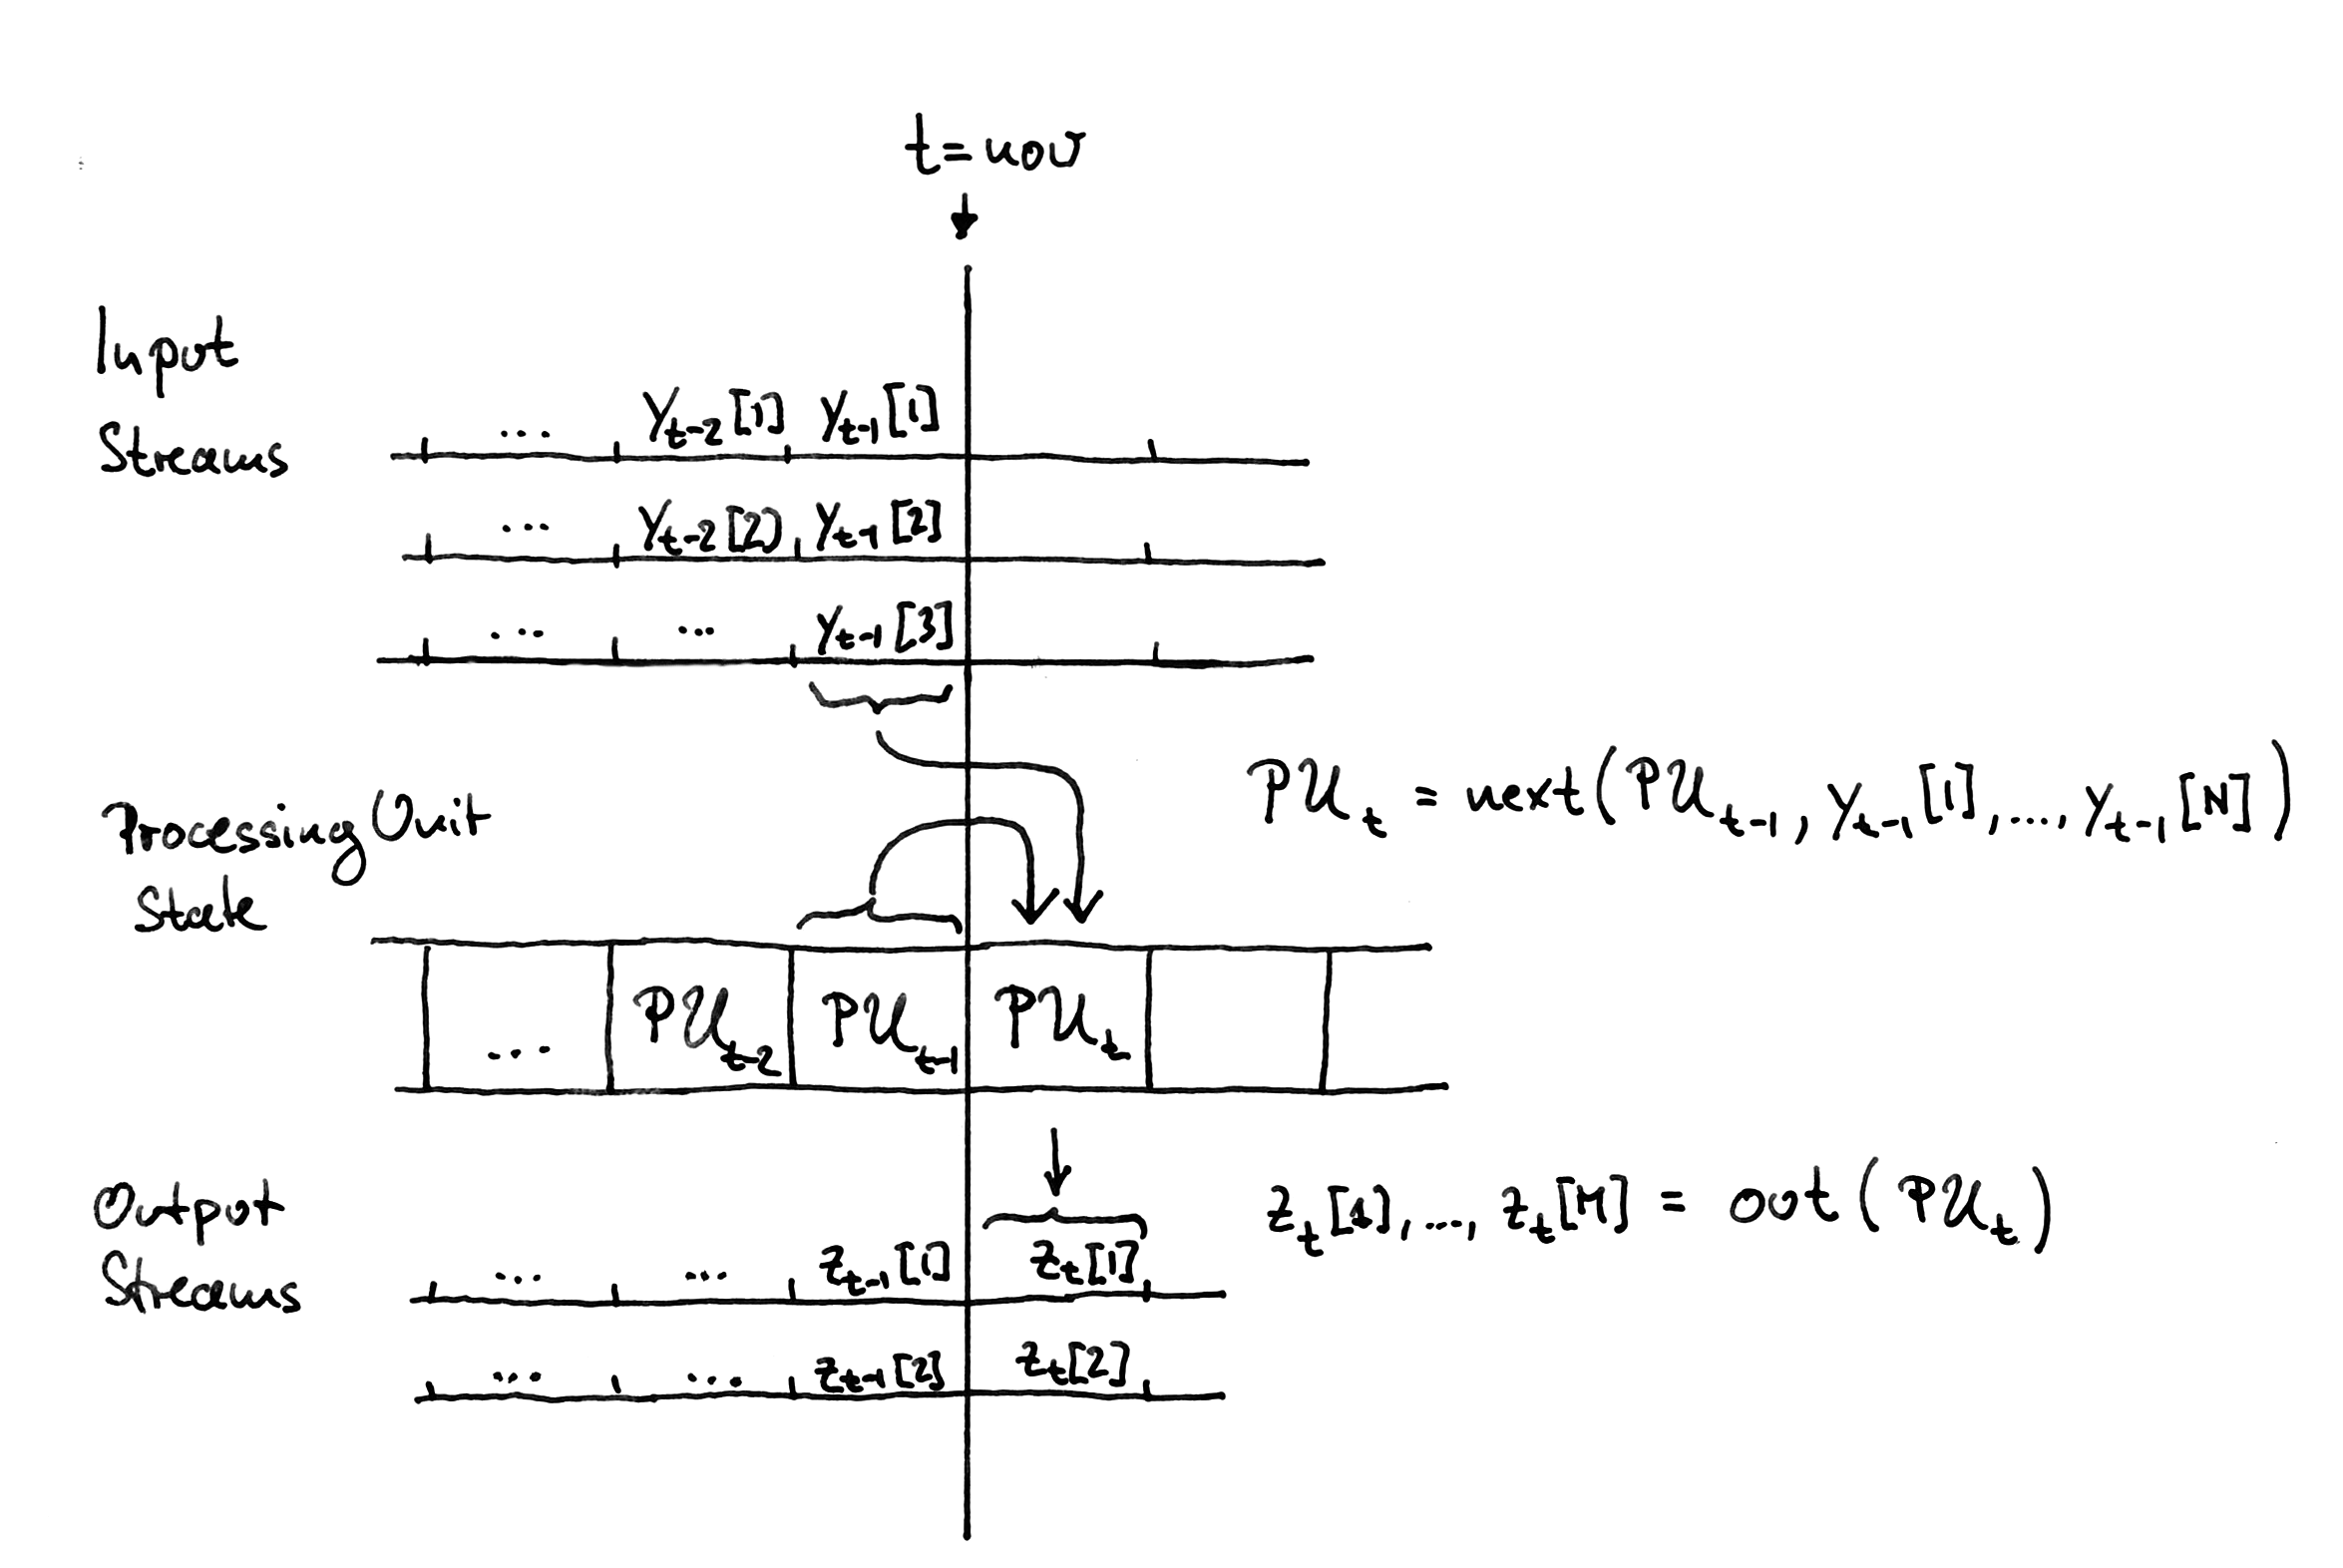 t=now
Input
Streams
... y_{t-2}[1] y_{t-1}[1]
... y_{t-2}[2] y_{t-1}[2]
... ... y_{t-1}[3]
Processing Unit
State
PU_t = next(PU_{t-1}, y_{t-1}[1], ..., y_{t-1}[N])
... PU_{t-2} PU_{t-1} PU_t
Output
Streams
z_t[1], ..., z_t[M] = out(PU_t)
... ... z_{t-1}[1] z_t[1]
... ... z_{t-1}[2] z_t[2]